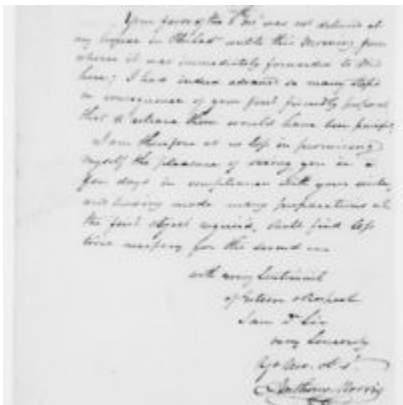 Your favor of the 6th Inst was not delivered at
my House in Philad until this Morning from
where it was immediately forwarded to me
here; I had indeed advanced so many steps
in consequence of your first friendly proposal
that to retrace them would have been painful,
I am therefore at no loss in promising
myself the pleasure of seeing you in a
few days in compliance with your invite,
and having made many preparations at
the first object required, shall find less
time necessary for the second
with every Sentiment
of Esteem & Respect
I am Dr Sir
very Sincerely
Yr Mo. Ob. St.
Anthony Morris